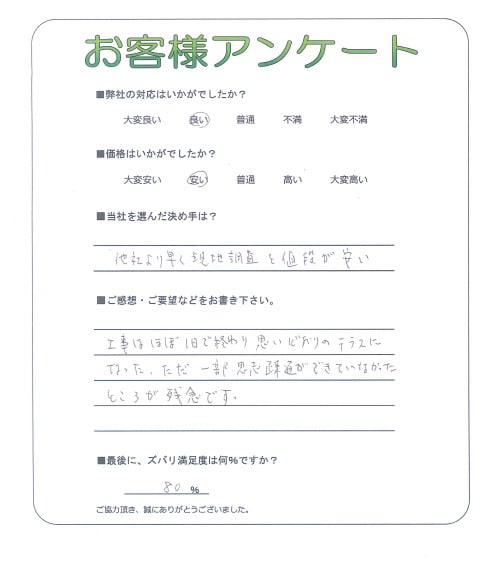 お客様アンケート
■弊社の対応はいかがでしたか？
大変良い 良い 普通 不満 大変不満
■価格はいかがでしたか？
大変安い 安い 普通 高い 大変高い
■当社を選んだ決め手は？
他社より早く現地調査と値段が安い
■ご感想・ご要望などをお書き下さい。
工事はほぼ1日で終わり思いどおりのテラスに
なった。ただ一部意志疎通ができていなかった
ところが残念です。
■最後に、ズバリ満足度は何％ですか？
80 %
ご協力頂き、誠にありがとうございました。